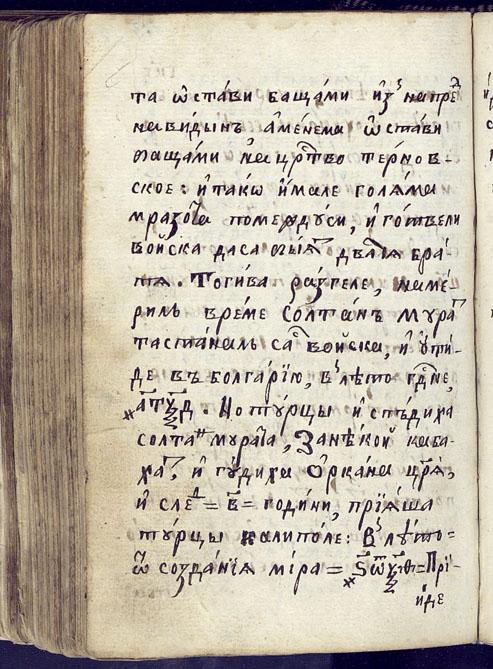 та ѡ҆ста́ви баща́ми и҆з̾ напреⷣ
нави́дынъ а҆ме́нема ѡ҆ста́ви
баща́ми на црⷭ҇тво терно́в-
ское: и҆та́кѡ и҆́мале голѧ́ма
мразо́та помеждꙋси, и҆ гото́вели
во́йска даса бїю́тⸯ двата брⸯа́-
тѧ. Тоги́ва разгеле, наме́-
рилъ вре́ме Солта́нъ мꙋраⷮ
таста́налъ саⷭ во́йска, и҆ ѹ҆ти́-
де въ болга́рїю, в̾ лѣ́то гдⷭ҇не,
҂а҃тѯд. Но тꙋ́рцы и҆спѣ́диха
солта́ⷩ мꙋра́та, Занѣ́кой каба-
хаⷮ, и҆ гꙋ́диха Ѻ҆рка́на црѧ̀,
и҆ слеⷣ = в҃ = годи́ни, прїѧ́ша
тꙋ́рцы калипо́ле: В̾ лѣ́то=
ѿ созда́нїѧ мі́ра = ҂ѕѿѯѳ = Прї-
и́де